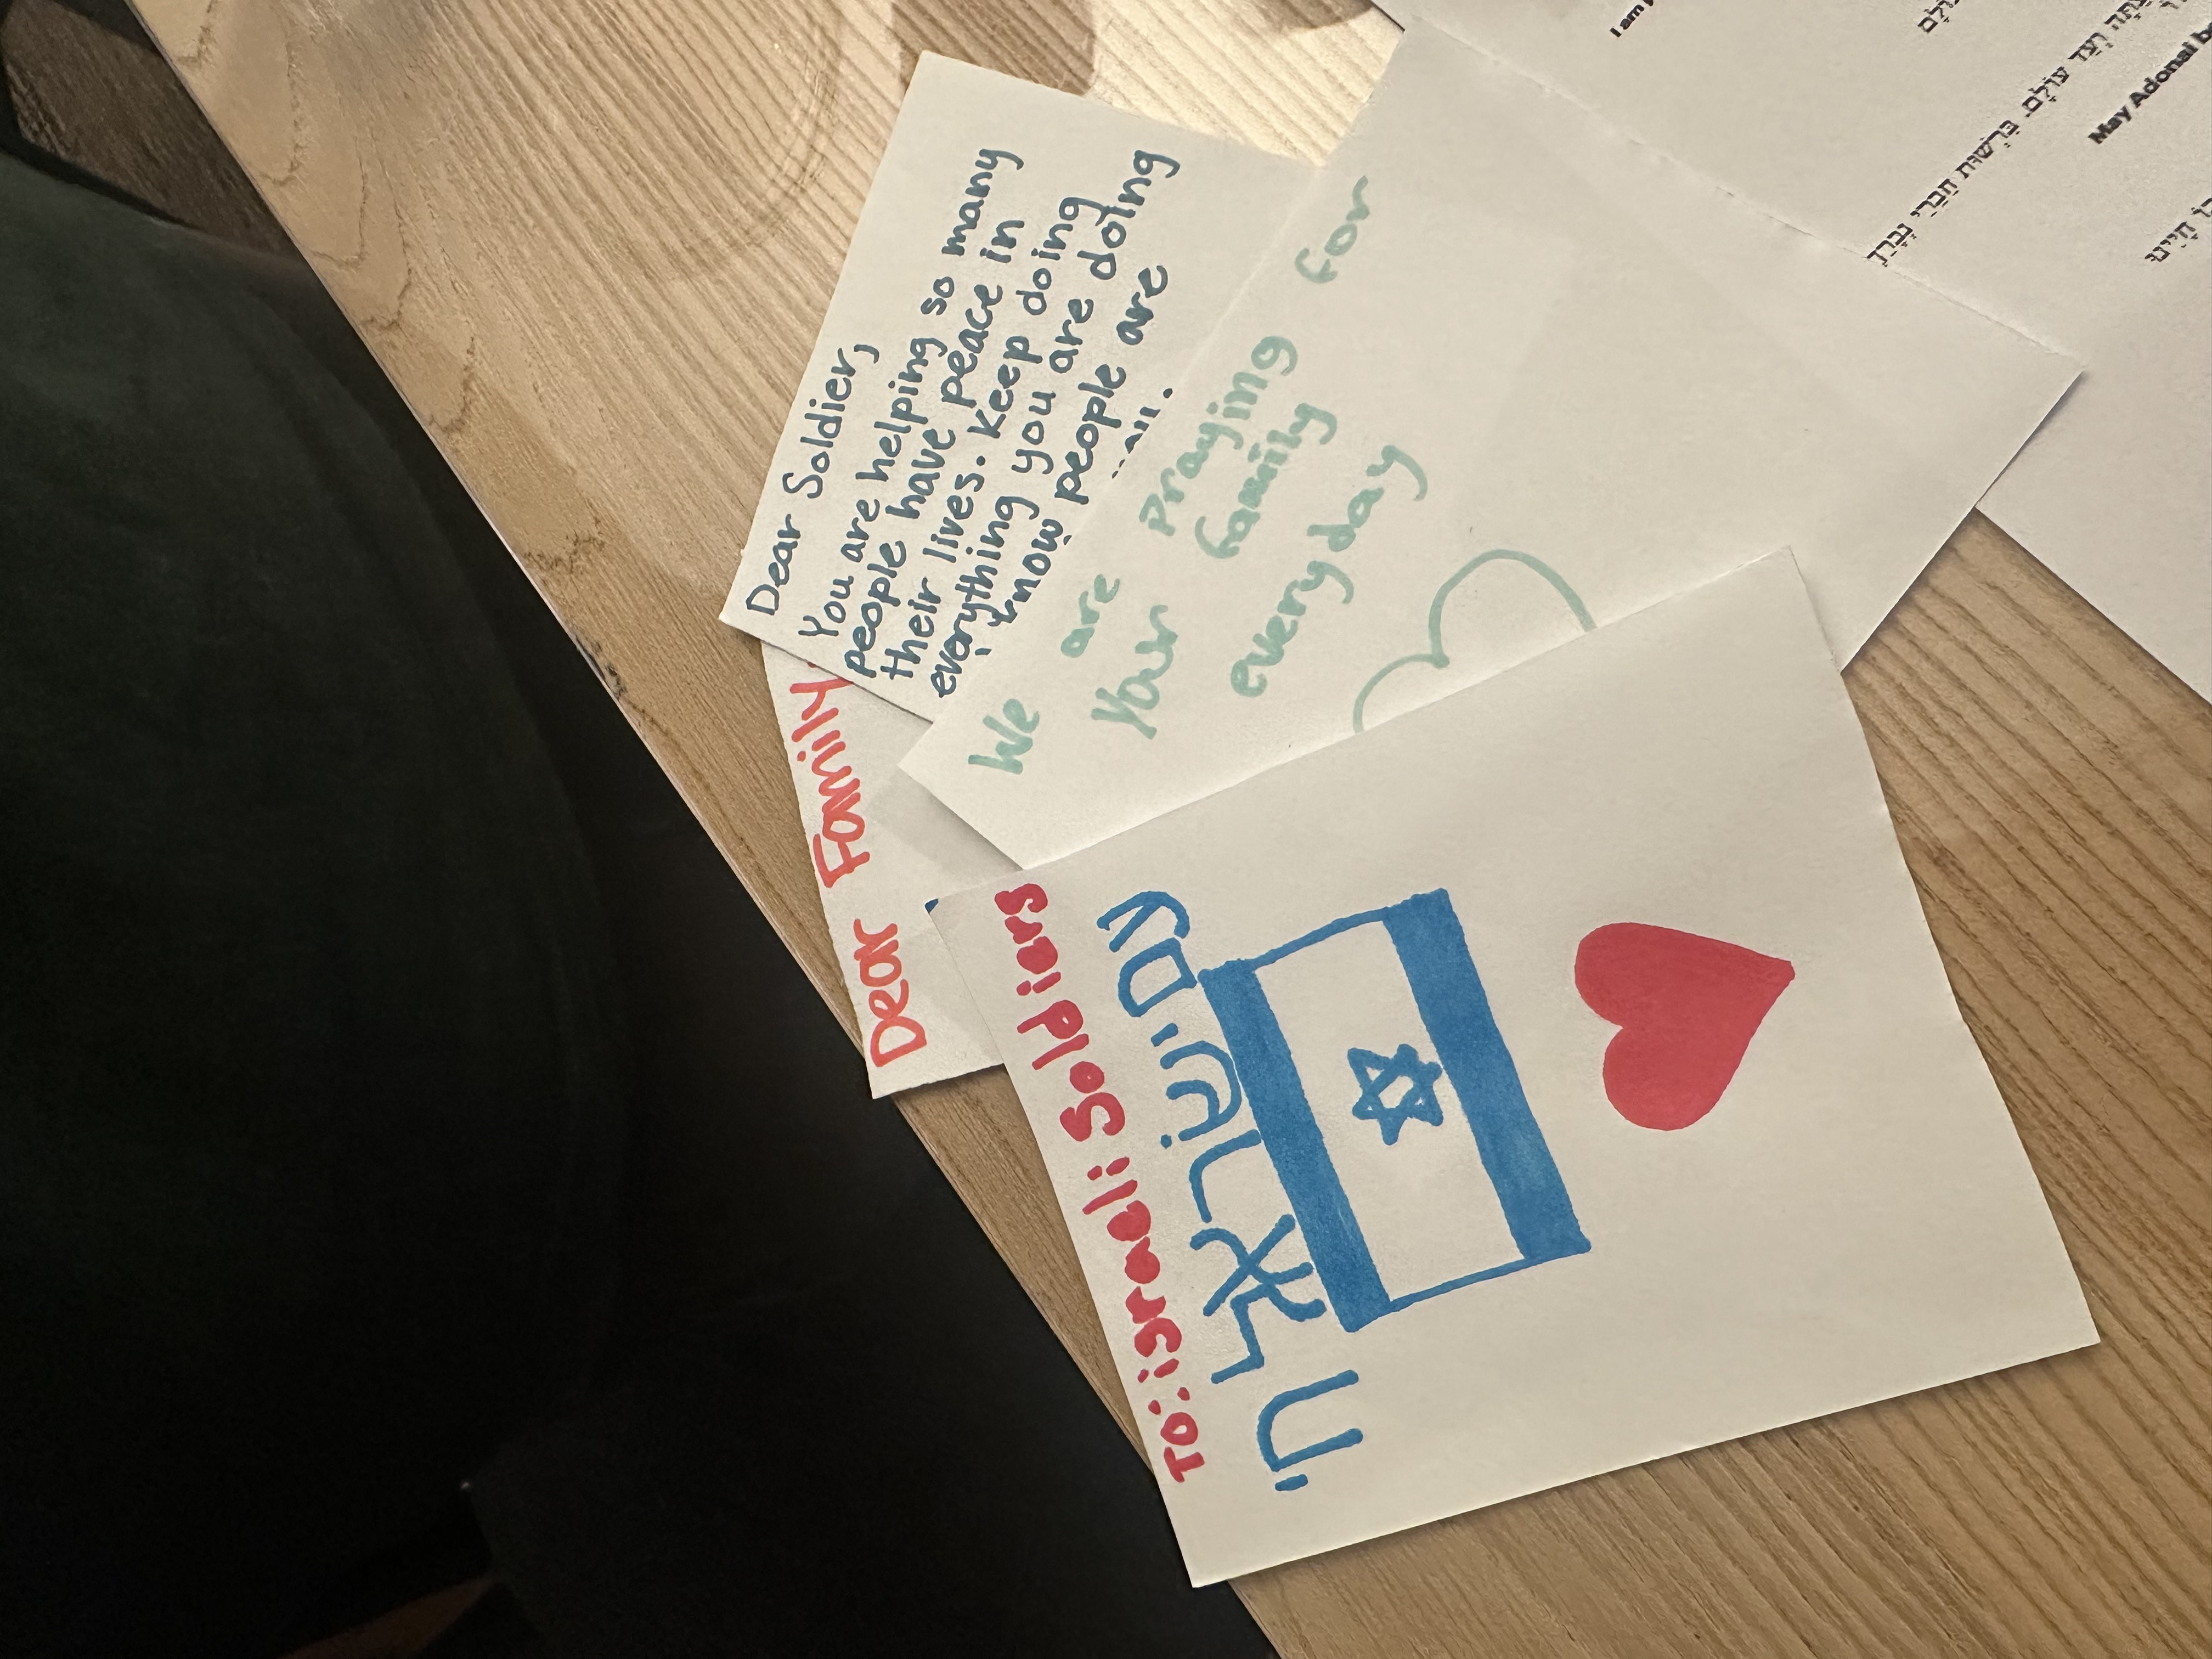 Dear Soldier,
You are helping so many
people have peace in
their lives. Keep doing
everything you are doing
know people are
We are Praying for
Your family
every day
Dear Family
To: israeli Soldiers
עם ישׂראל חי
I am
וְעַד עוֹלָם. בִּרְשׁוּת חֲבֵרַי נְבָרֵךְ
May Adonai
חַיֵּינוּ